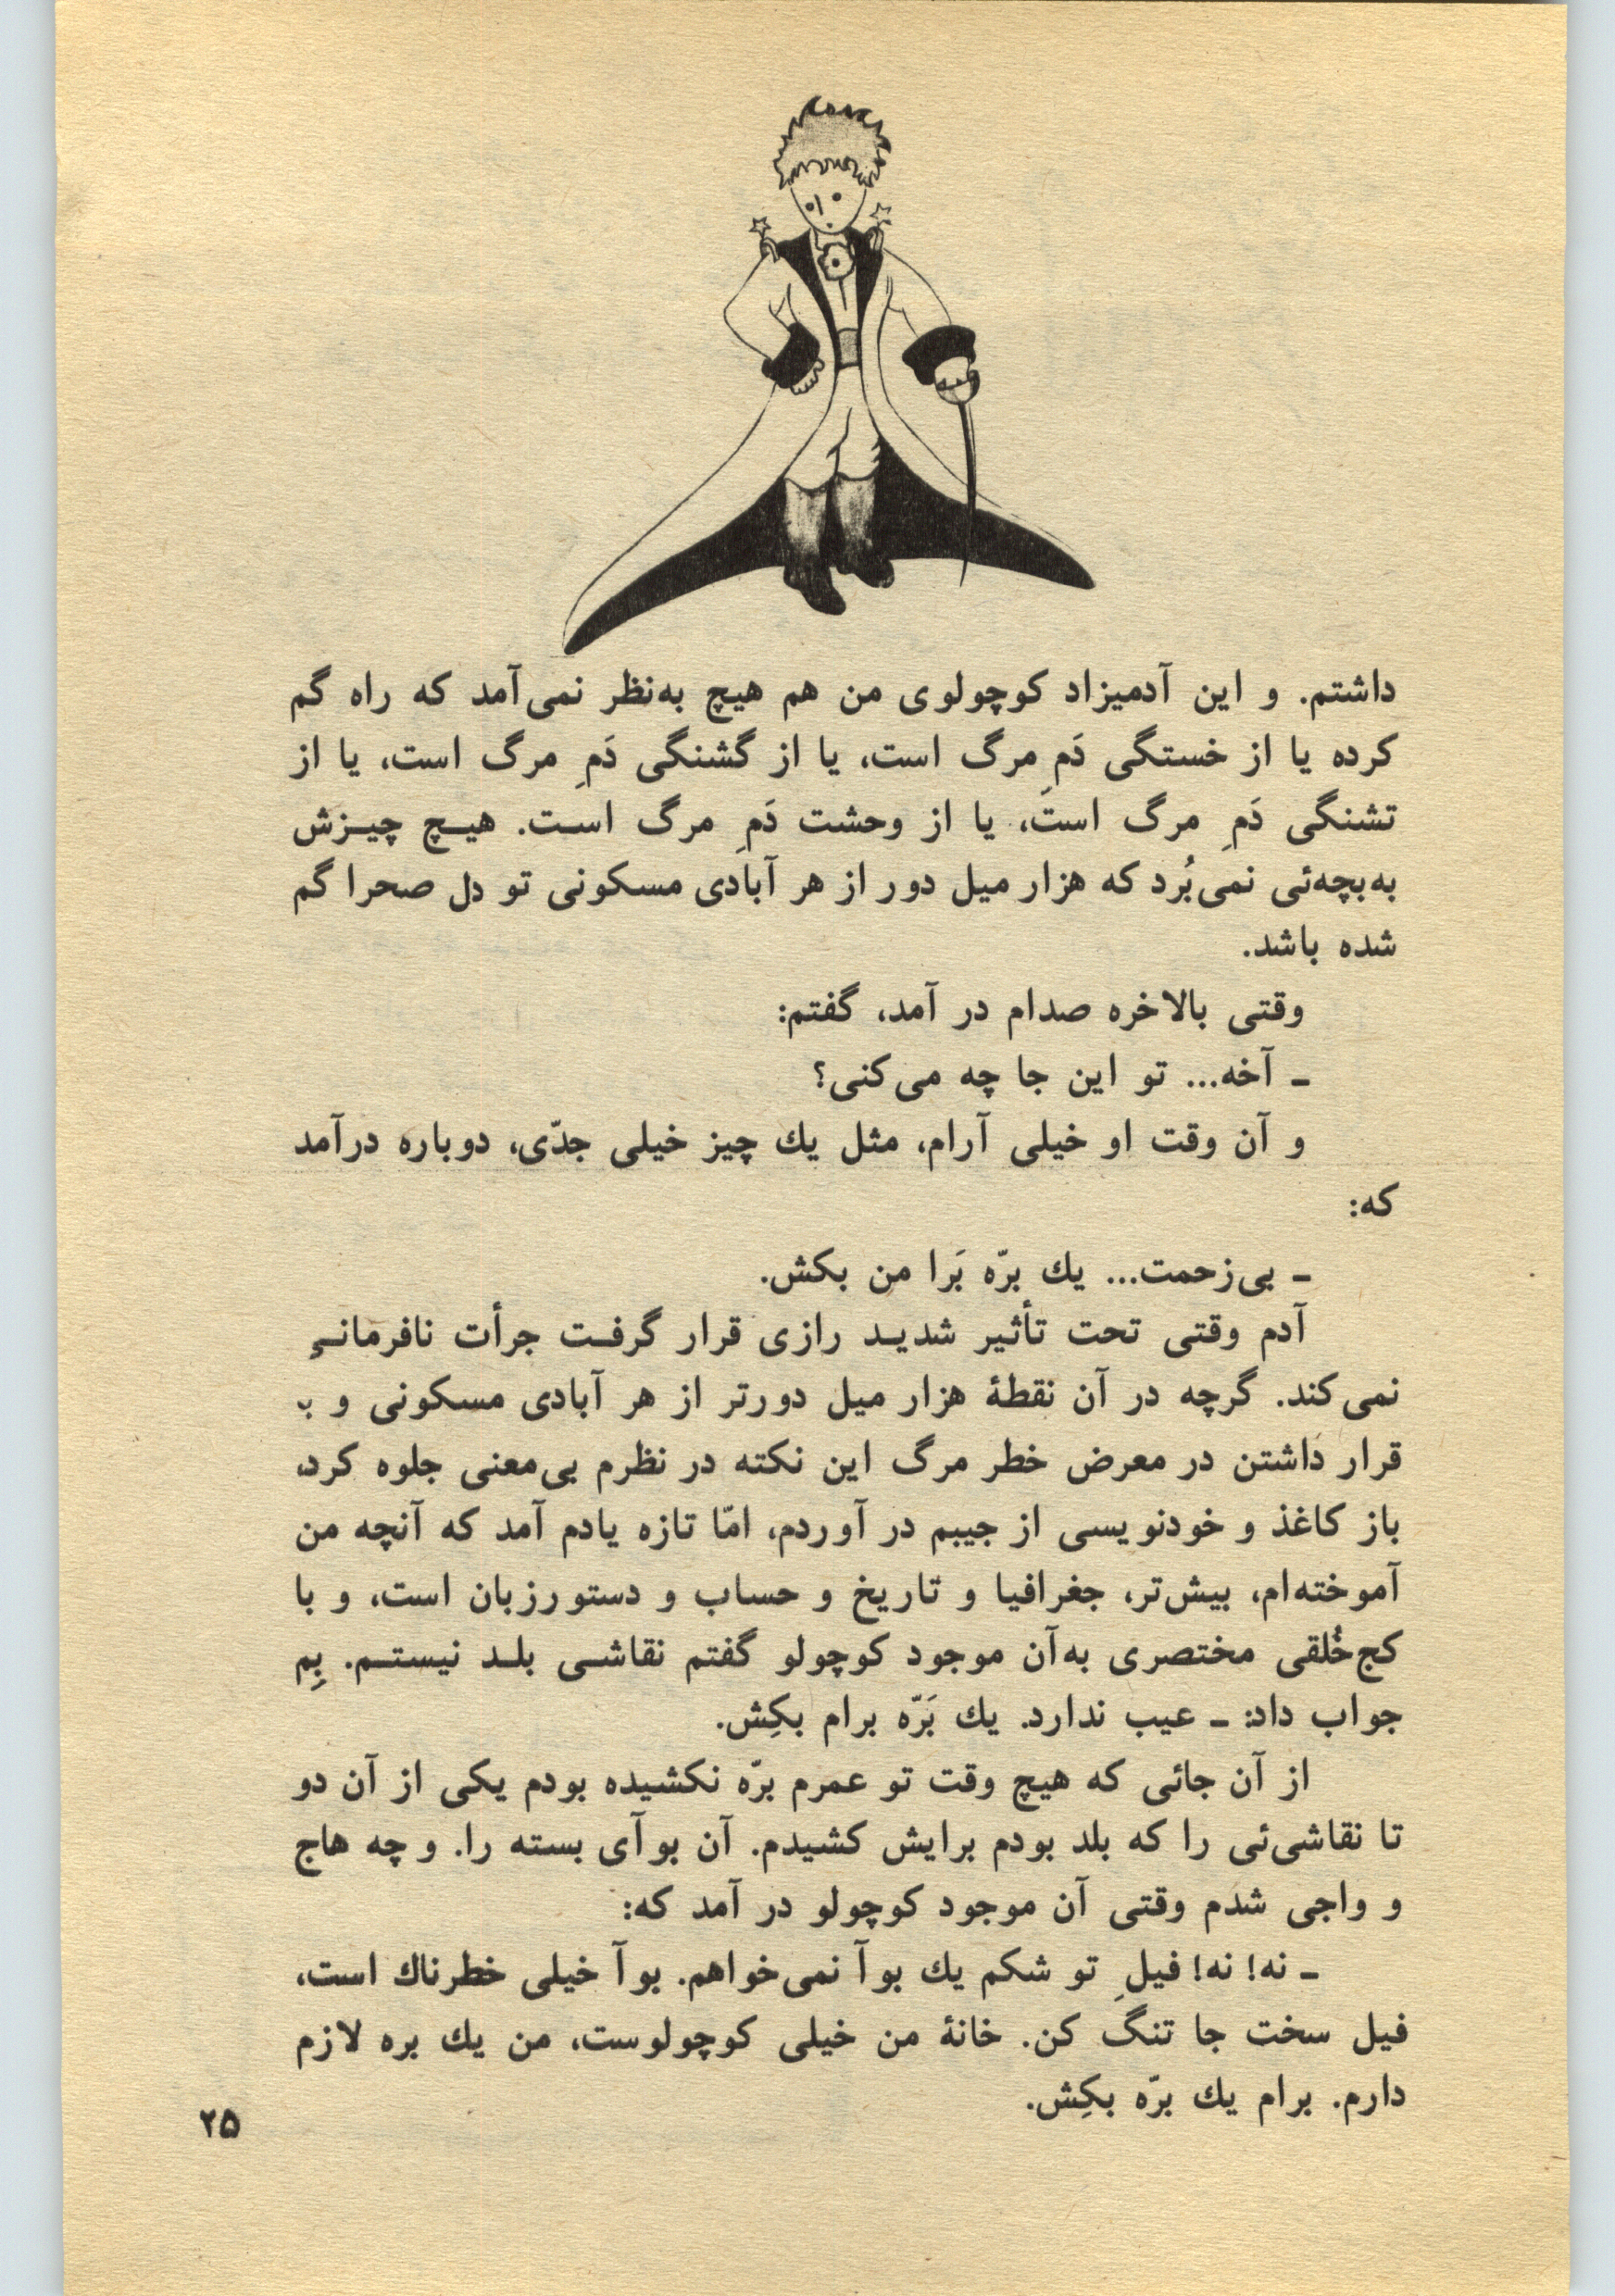 داشتم. و این آدمیزاد کوچولوی من هم هیچ به‌نظر نمی‌آمد که راه گم
کرده یا از خستگی دَمِ مرگ است، یا از گشنگی دَمِ مرگ است، یا از
تشنگی دَمِ مرگ است، یا از وحشت دَمِ مرگ است. هیچ چیزش
به‌بچه‌ئی نمی‌بُرد که هزار میل دور از هر آبادی مسکونی تو دل صحرا گم
شده باشد.
وقتی بالاخره صدام در آمد، گفتم:
ـ آخه... تو این جا چه می‌کنی؟
و آن وقت او خیلی آرام، مثل یك چیز خیلی جدّی، دوباره درآمد
که:
ـ بی‌زحمت... یك برّه بَرا من بکش.
آدم وقتی تحت تأثیر شدید رازی قرار گرفت جرأت نافرمانی
نمی‌کند. گرچه در آن نقطهٔ هزار میل دورتر از هر آبادی مسکونی و
قرار داشتن در معرض خطر مرگ این نکته در نظرم بی‌معنی جلوه کرد،
باز کاغذ و خودنویسی از جیبم در آوردم، امّا تازه یادم آمد که آنچه من
آموخته‌ام، بیش‌تر، جغرافیا و تاریخ و حساب و دستورزبان است، و با
کج‌خُلقی مختصری به‌آن موجود کوچولو گفتم نقاشی بلد نیستم. بِم
جواب داد: ـ عیب ندارد. یك بَرّه برام بکِش.
از آن جائی که هیچ وقت تو عمرم برّه نکشیده بودم یکی از آن دو
تا نقاشی‌ئی را که بلد بودم برایش کشیدم. آن بوآی بسته را. و چه هاج
و واجی شدم وقتی آن موجود کوچولو در آمد که:
ـ نه! نه! فیلِ تو شکم یك بوآ نمی‌خواهم. بوآ خیلی خطرناك است،
فیل سخت جا تنگ کن. خانهٔ من خیلی کوچولوست، من یك بره لازم
دارم. برام یك برّه بکِش.
۲۵